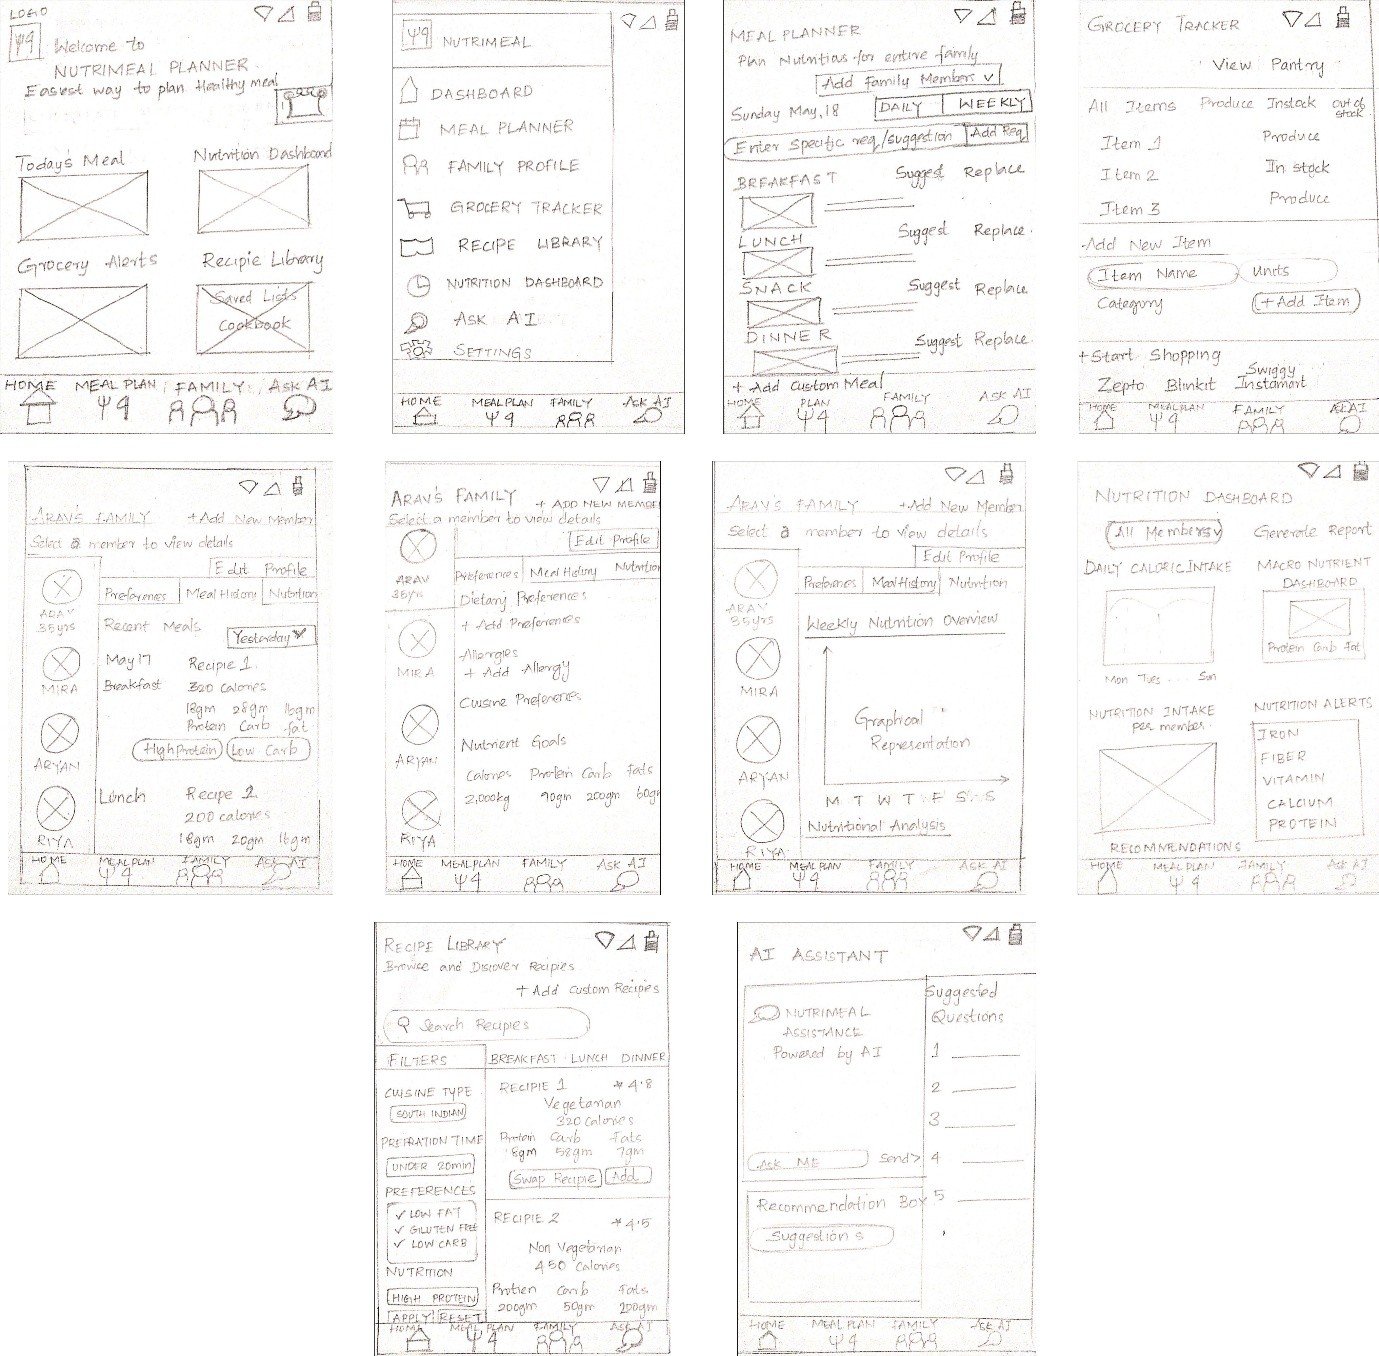 LOGO
Welcome to
NUTRIMEAL PLANNER.
Easiest way to plan Healthy meal
Today's Meal
Nutrition Dashboard
Grocery Alerts
Recipie Library
Saved Lists
Cookbook
HOME MEAL PLAN FAMILY ASK AI
NUTRIMEAL
DASHBOARD
MEAL PLANNER
FAMILY PROFILE
GROCERY TRACKER
RECIPE LIBRARY
NUTRITION DASHBOARD
ASK AI
SETTINGS
HOME MEAL PLAN FAMILY ASK AI
MEAL PLANNER
Plan Nutritious for entire family
Add Family Members v
Sunday May, 18 DAILY WEEKLY
Enter specific req/suggestion Add Req
BREAKFAST Suggest Replace
LUNCH Suggest Replace.
SNACK Suggest Replace
DINNER Suggest Replace.
+ Add Custom Meal
HOME PLAN FAMILY ASK AI
GROCERY TRACKER
View Pantry
All Items Produce Instock out of stock
Item 1 Produce
Item 2 In stock
Item 3 Produce
Add New Item
Item Name Units
Category + Add Item
+Start Shopping
Zepto Blinkit Swiggy Instamart
HOME MEAL PLAN FAMILY ASK AI
ARAV'S FAMILY +Add New Member
Select a member to view details
Edit Profile
Preferences Meal History Nutrition
ARAV
35yrs
MIRA
ARYAN
RIYA
Recent Meals
Yesterday
May 17 Recipie 1
Breakfast 320 Calories
18gm 28gm 16gm
Protein Carb fat
High Protein Low Carb
Lunch Recipe 2
200 calories
18gm 20gm 16gm
HOME MEAL PLAN FAMILY ASK AI
ARAV'S FAMILY + ADD NEW MEMBE
Select a member to view details
Edit Profile
Preferences Meal History Nutrition
ARAV
35yrs
MIRA
ARYAN
RIYA
Dietary Preferences
+ Add Preferences
Allergies
+ Add Allergy
Cuisine Preferences
Nutrient Goals
Calories Protein Carb Fats
2,000kg 90gm 200gm 60gm
HOME MEAL PLAN FAMILY ASK AI
ARAV'S FAMILY +Add New Member
Select a member to view details
Edit Profile
Preferences Meal History Nutrition
ARAV
35yrs
MIRA
ARYAN
RIYA
Weekly Nutrition Overview
Graphical
Representation
M T W T F S S
Nutritional Analysis
HOME MEAL PLAN FAMILY ASK AI
NUTRITION DASHBOARD
All Members v Generate Report
DAILY CALORIC INTAKE
Mon Tues ... Sun
MACRO NUTRIENT
DASHBOARD
Protein Carb Fat
NUTRITION INTAKE
per member.
NUTRITION ALERTS
IRON
FIBER
VITAMIN
CALCIUM
PROTEIN
RECOMMENDATIONS
HOME MEAL PLAN FAMILY ASK AI
RECIPE LIBRARY
Browse and Discover Recipies
+ Add Custom Recipies
Search Recipies
FILTERS
CUISINE TYPE
SOUTH INDIAN
PREPRATION TIME
UNDER 20min
PREFERENCES
✓ LOW FAT
✓ GLUTEN FREE
✓ LOW CARB
NUTRITION
HIGH PROTEIN
APPLY RESET
BREAKFAST LUNCH DINNER
RECIPIE 1 *4.8
Vegetarian
320 Calories
Protein Carb Fats
8gm 58gm 7gm
Swap Recipie Add
RECIPIE 2 *4.5
Non Vegetarian
450 Calories
Protien Carb Fats
200gm 50gm 200gm
HOME MEAL PLAN FAMILY ASK AI
AI ASSISTANT
NUTRIMEAL
ASSISTANCE
Powered by AI
ASK ME Send>
Recommendation Box
Suggestions
Suggested
Questions
1
2
3
4
5
HOME MEAL PLAN FAMILY ASK AI